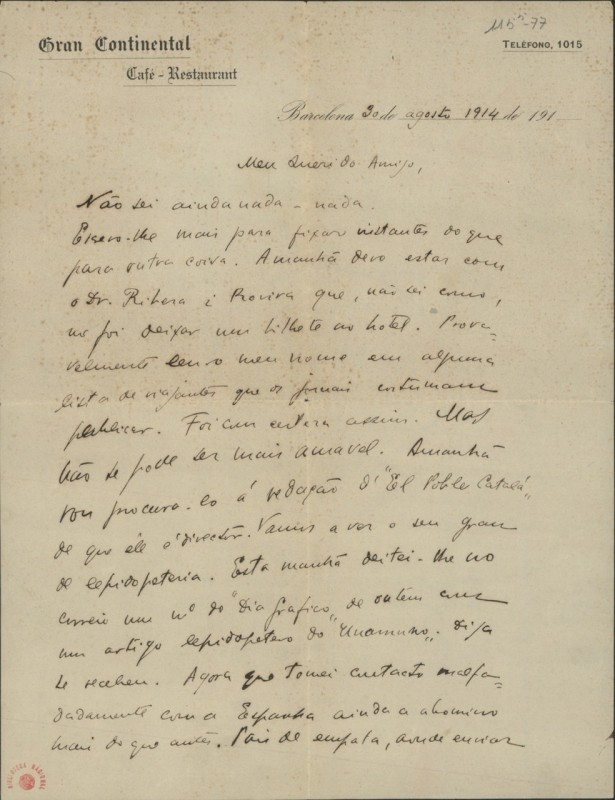 115⁵-77
Gran Continental
Café - Restaurant
TELÉFONO, 1015
Barcelona 30 de agosto 1914 de 191
Meu Querido Amigo,
Não sei ainda nada - nada.
Escrevo-lhe mais para fixar instantes do que
para outra coisa. Amanhã devo estar com
o Dr. Ribera i Rovira que, não sei como,
me foi deixar um bilhete no hotel. Prova-
velmente leu o meu nome em alguma
lista de viajantes que os jornais costumam
publicar. Foi com certeza assim. Mas
não se pode ser mais amavel. Amanhã
vou procura-lo á redacção d' "El Poble Català"
de que êle é director. Vamos a ver o seu grau
de lepidopteria. Esta manhã deitei-lhe no
correio um nº do "Dia Grafico" de ontem com
um artigo lepidoptero do "Unamuno". Diga
se recebeu. Agora que tomei contacto malfa-
dadamente com a Espanha ainda a abomino
mais do que antes. País de empata, aonde enviar
BIBLIOTECA NACIONAL